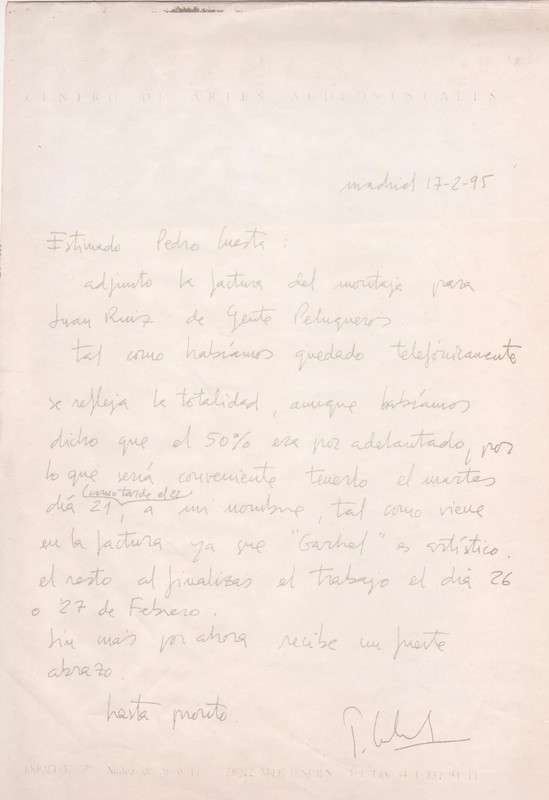 CENTRO DE ARTES AUDIOVISUALES
madrid 17-2-95
Estimado Pedro Cuesta :
adjunto la factura del montaje para
Juan Ruiz de Gente Peluqueros.
tal como habíamos quedado telefónicamente
se refleja la totalidad, aunque habíamos
dicho que el 50% era por adelantado, por
lo que sería conveniente tenerlo el martes
(como tarde el 22
día 21, a mi nombre, tal como viene
en la factura ya que "Garhel" es artístico.
el resto al finalizar el trabajo el día 26
o 27 de Febrero.
Sin más por ahora recibe un fuerte
abrazo.
hasta pronto.